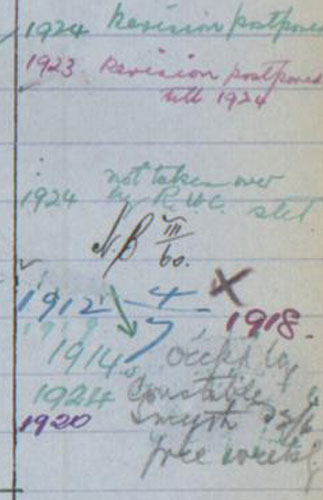 1924 Revision postponed
1923 Revision postponed
till 1924
not taken over
1924 by R.W.C. stet
N.B VIII/60.
1912 4 X
7 1918.
1914 Occpd by
1924 Constable
1920 Smyth
free weekly